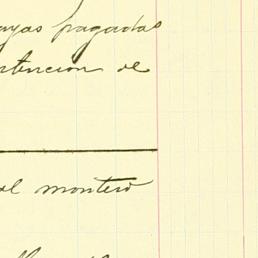 ayas pagadas
ntencion de
al montero